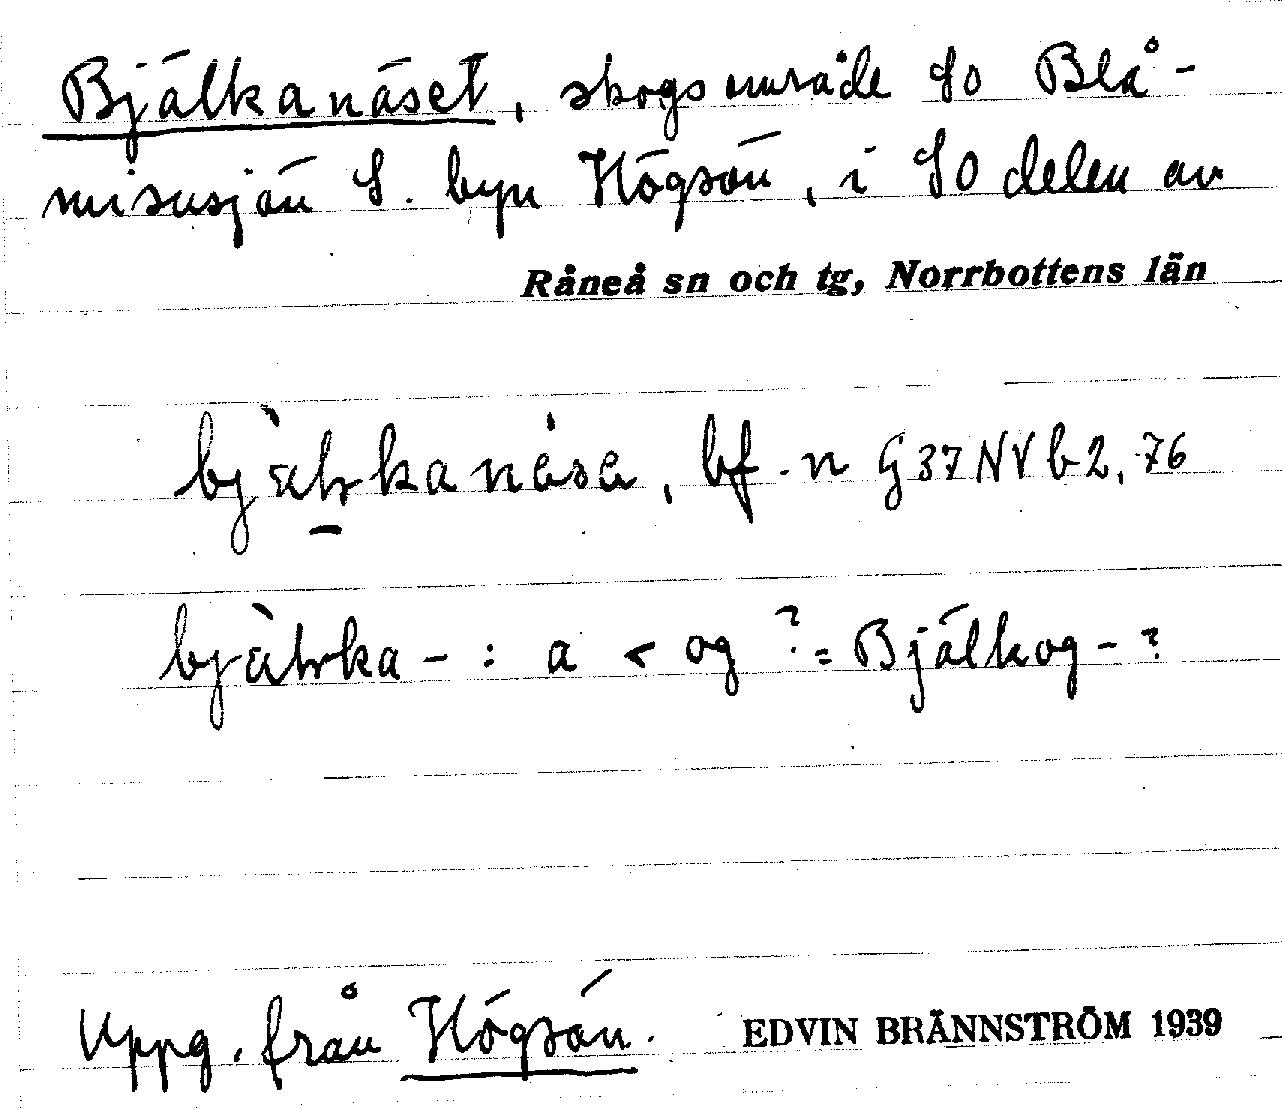 Bjälkanäset, skogsområde SO Blå-
misusjön S. byn Högsön, i SO delen av
Råneå sn och tg, Norrbottens län
bf. n G 37 NV b 2, 76
- : a < og ? = Bjälkog- ?
Uppg. från Högsön. EDVIN BRÄNNSTRÖM 1939